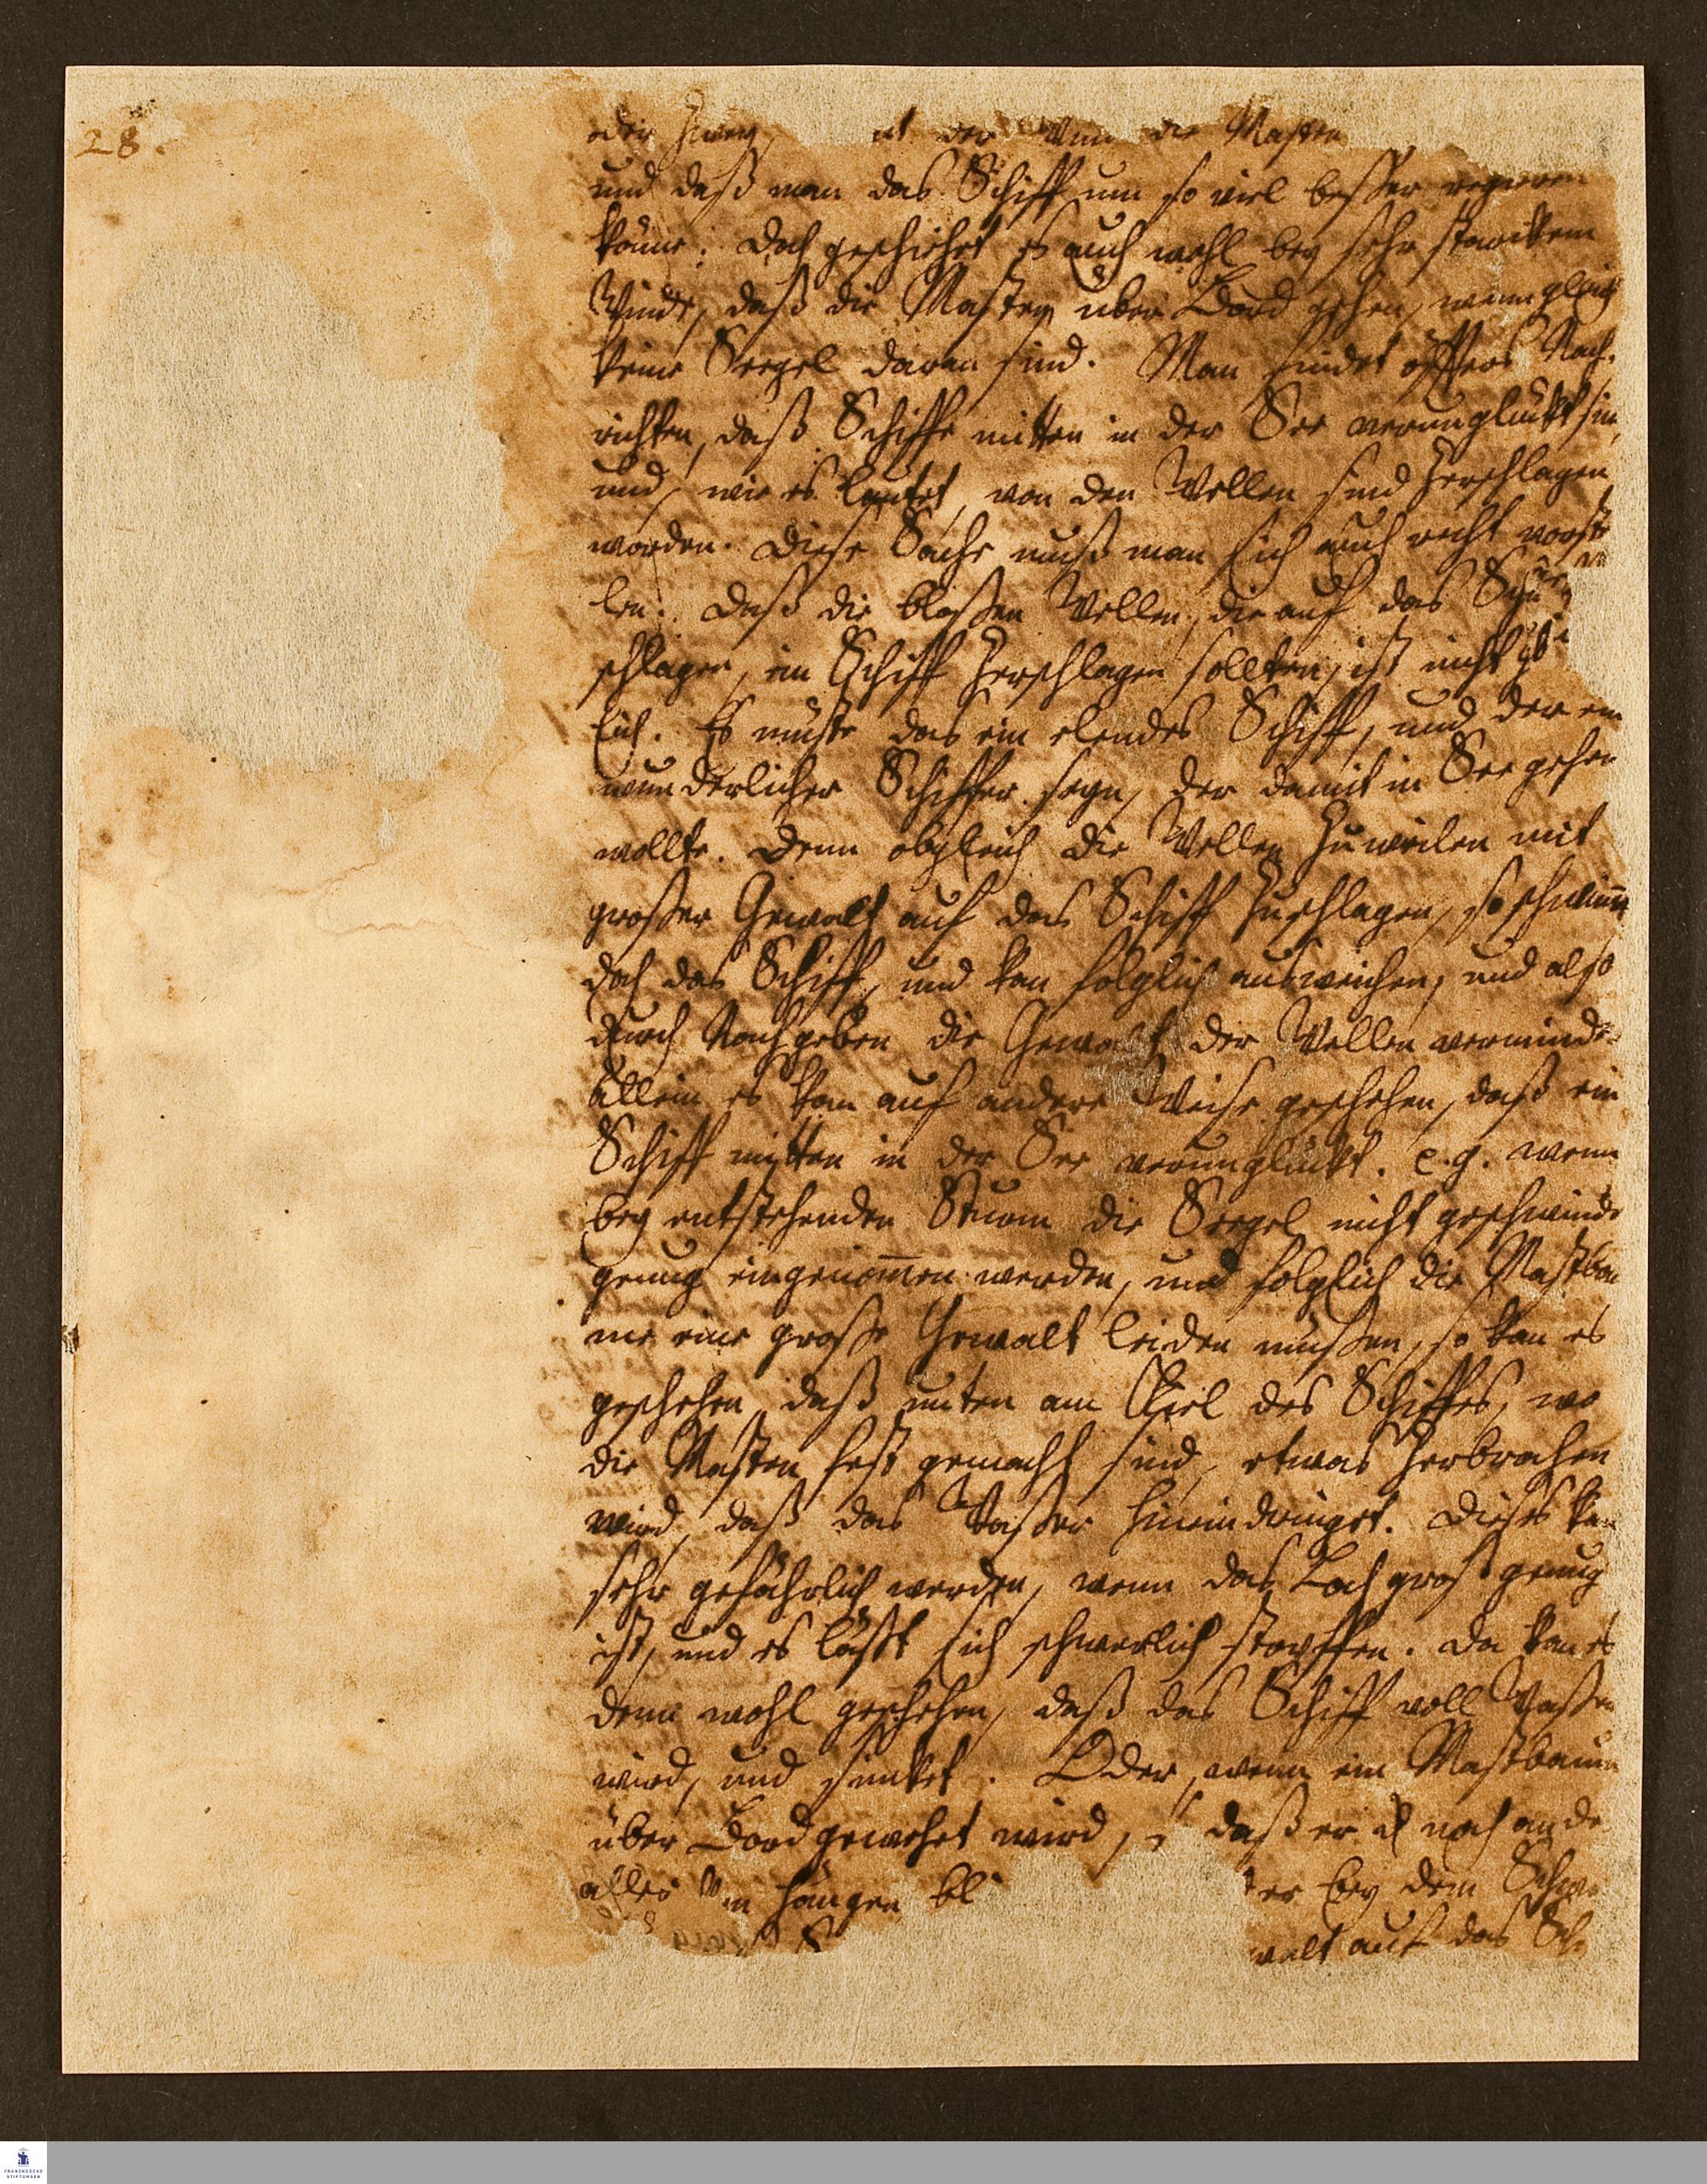 28.
oder zwey, der die Masten
und daß man das Schiff um so viel beßer regieren
könne: doch geschiehet es auch wohl bey sehr starckem
Winde, daß die Masten über Bord gehen, wenn gleich
keine Seegel daran sind. Man findet öffters Nach-
richten, daß Schiffe mitten in der See verunglückt sin
und, wie es lautet, von den Wellen sind zerschlagen
worden. Diese Sache muß man sich auch recht vorste
len. Daß die bloßen Wellen, die auf das
schlagen, ein Schiff zerschlagen sollten, ist nicht
lich. Es müste das ein elendes Schiff, und der ein
wunderlicher Schiffer seyn, der damit in See gehen
wollte. Denn obgleich die Wellen zuweilen mit
großer Gewalt auf das Schiff zuschlagen, so schwimt
doch das Schiff, und kan folglich ausweichen, und also
durch Nachgeben die Gewalt der Wellen verminde
Allein es kan auf andere Weise geschehen, daß ein
Schiff mitten in der See verunglückt. e.g. wenn
bey entstehenden Sturm die Seegel nicht geschwinde
genug eingenom̄en werden, und folglich die Mastbäu
me eine große Gewalt leiden müßen, so kan es
geschehen, daß unten am Kiel des Schiffes, wo
die Masten fest gemacht sind, etwas zerbrochen
wird, daß das Waßer hineindringet. Dieses ka
sehr gefährlich werden, wenn das Loch groß genug
ist, und es läßt sich schwerlich stopffen. Da kan es
denn wohl geschehen, daß das Schiff voll Waßer
wird, und sincket. Oder, wenn ein Mastbaum
über Bord gewehet wird, daß er noch an de
alles hängen bl er bey dem
walt auf das Sch
FRANCKESCHE
STIFTUNGEN